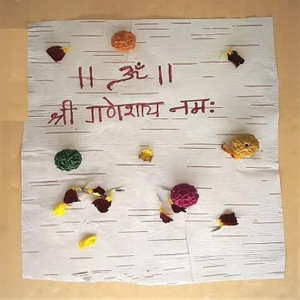 ॥ ॐ ॥
श्री गणेशाय नमः